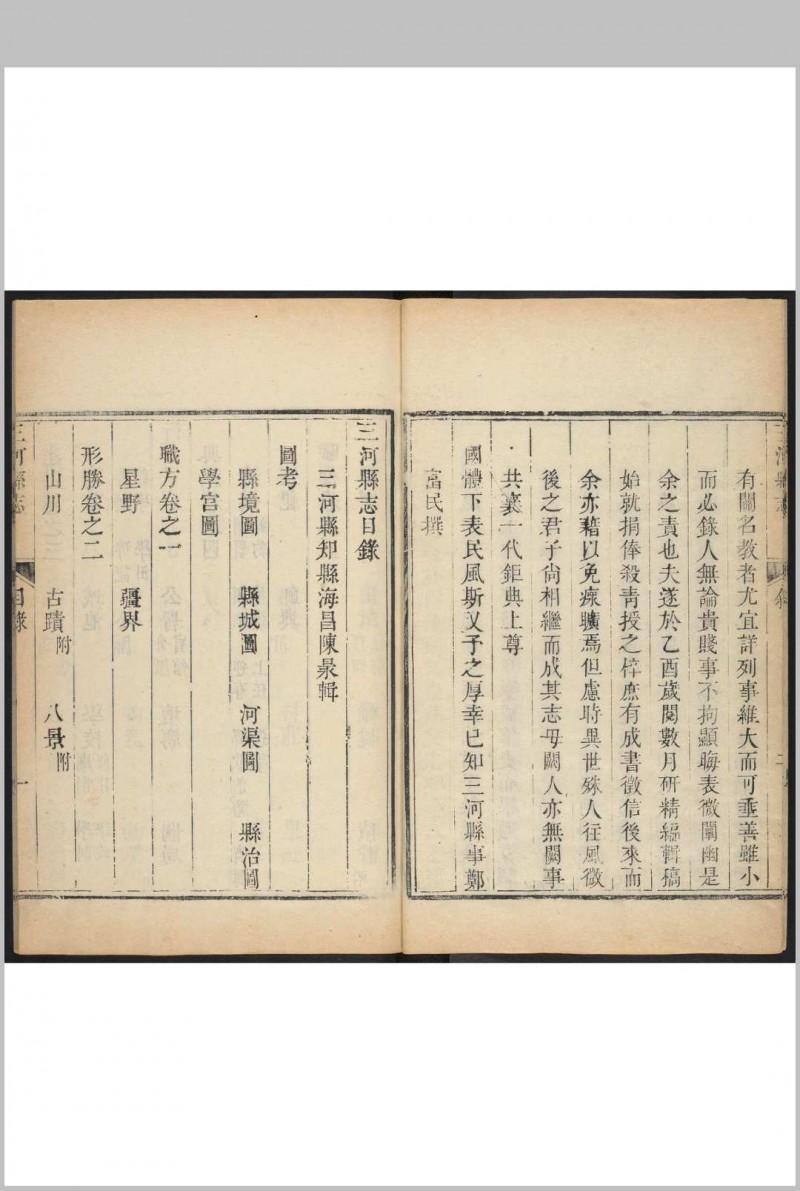 有關名教者尤宜詳列事維大而可垂善雖小
而必錄人無論貴賤事不拘顯晦表微闡幽是
余之責也夫遂於乙酉歲閱數月研精編輯稿
始就捐俸殺青授之梓庶有成書徵信後來而
余亦藉以免瘝曠焉但慮時異世殊人往風微
後之君子尚相繼而成其志毋闕人亦無闕事
共襄一代鉅典上尊
國體下表民風斯又予之厚幸已知三河縣事鄭
富民撰
三河縣志目錄
三河縣知縣海昌陳㫤輯
圖考
縣境圖 縣城圖 河渠圖 縣治圖
學宮圖
職方卷之一
星野 疆界
形勝卷之二
山川 古蹟附 八景附
三河縣志 目錄 一